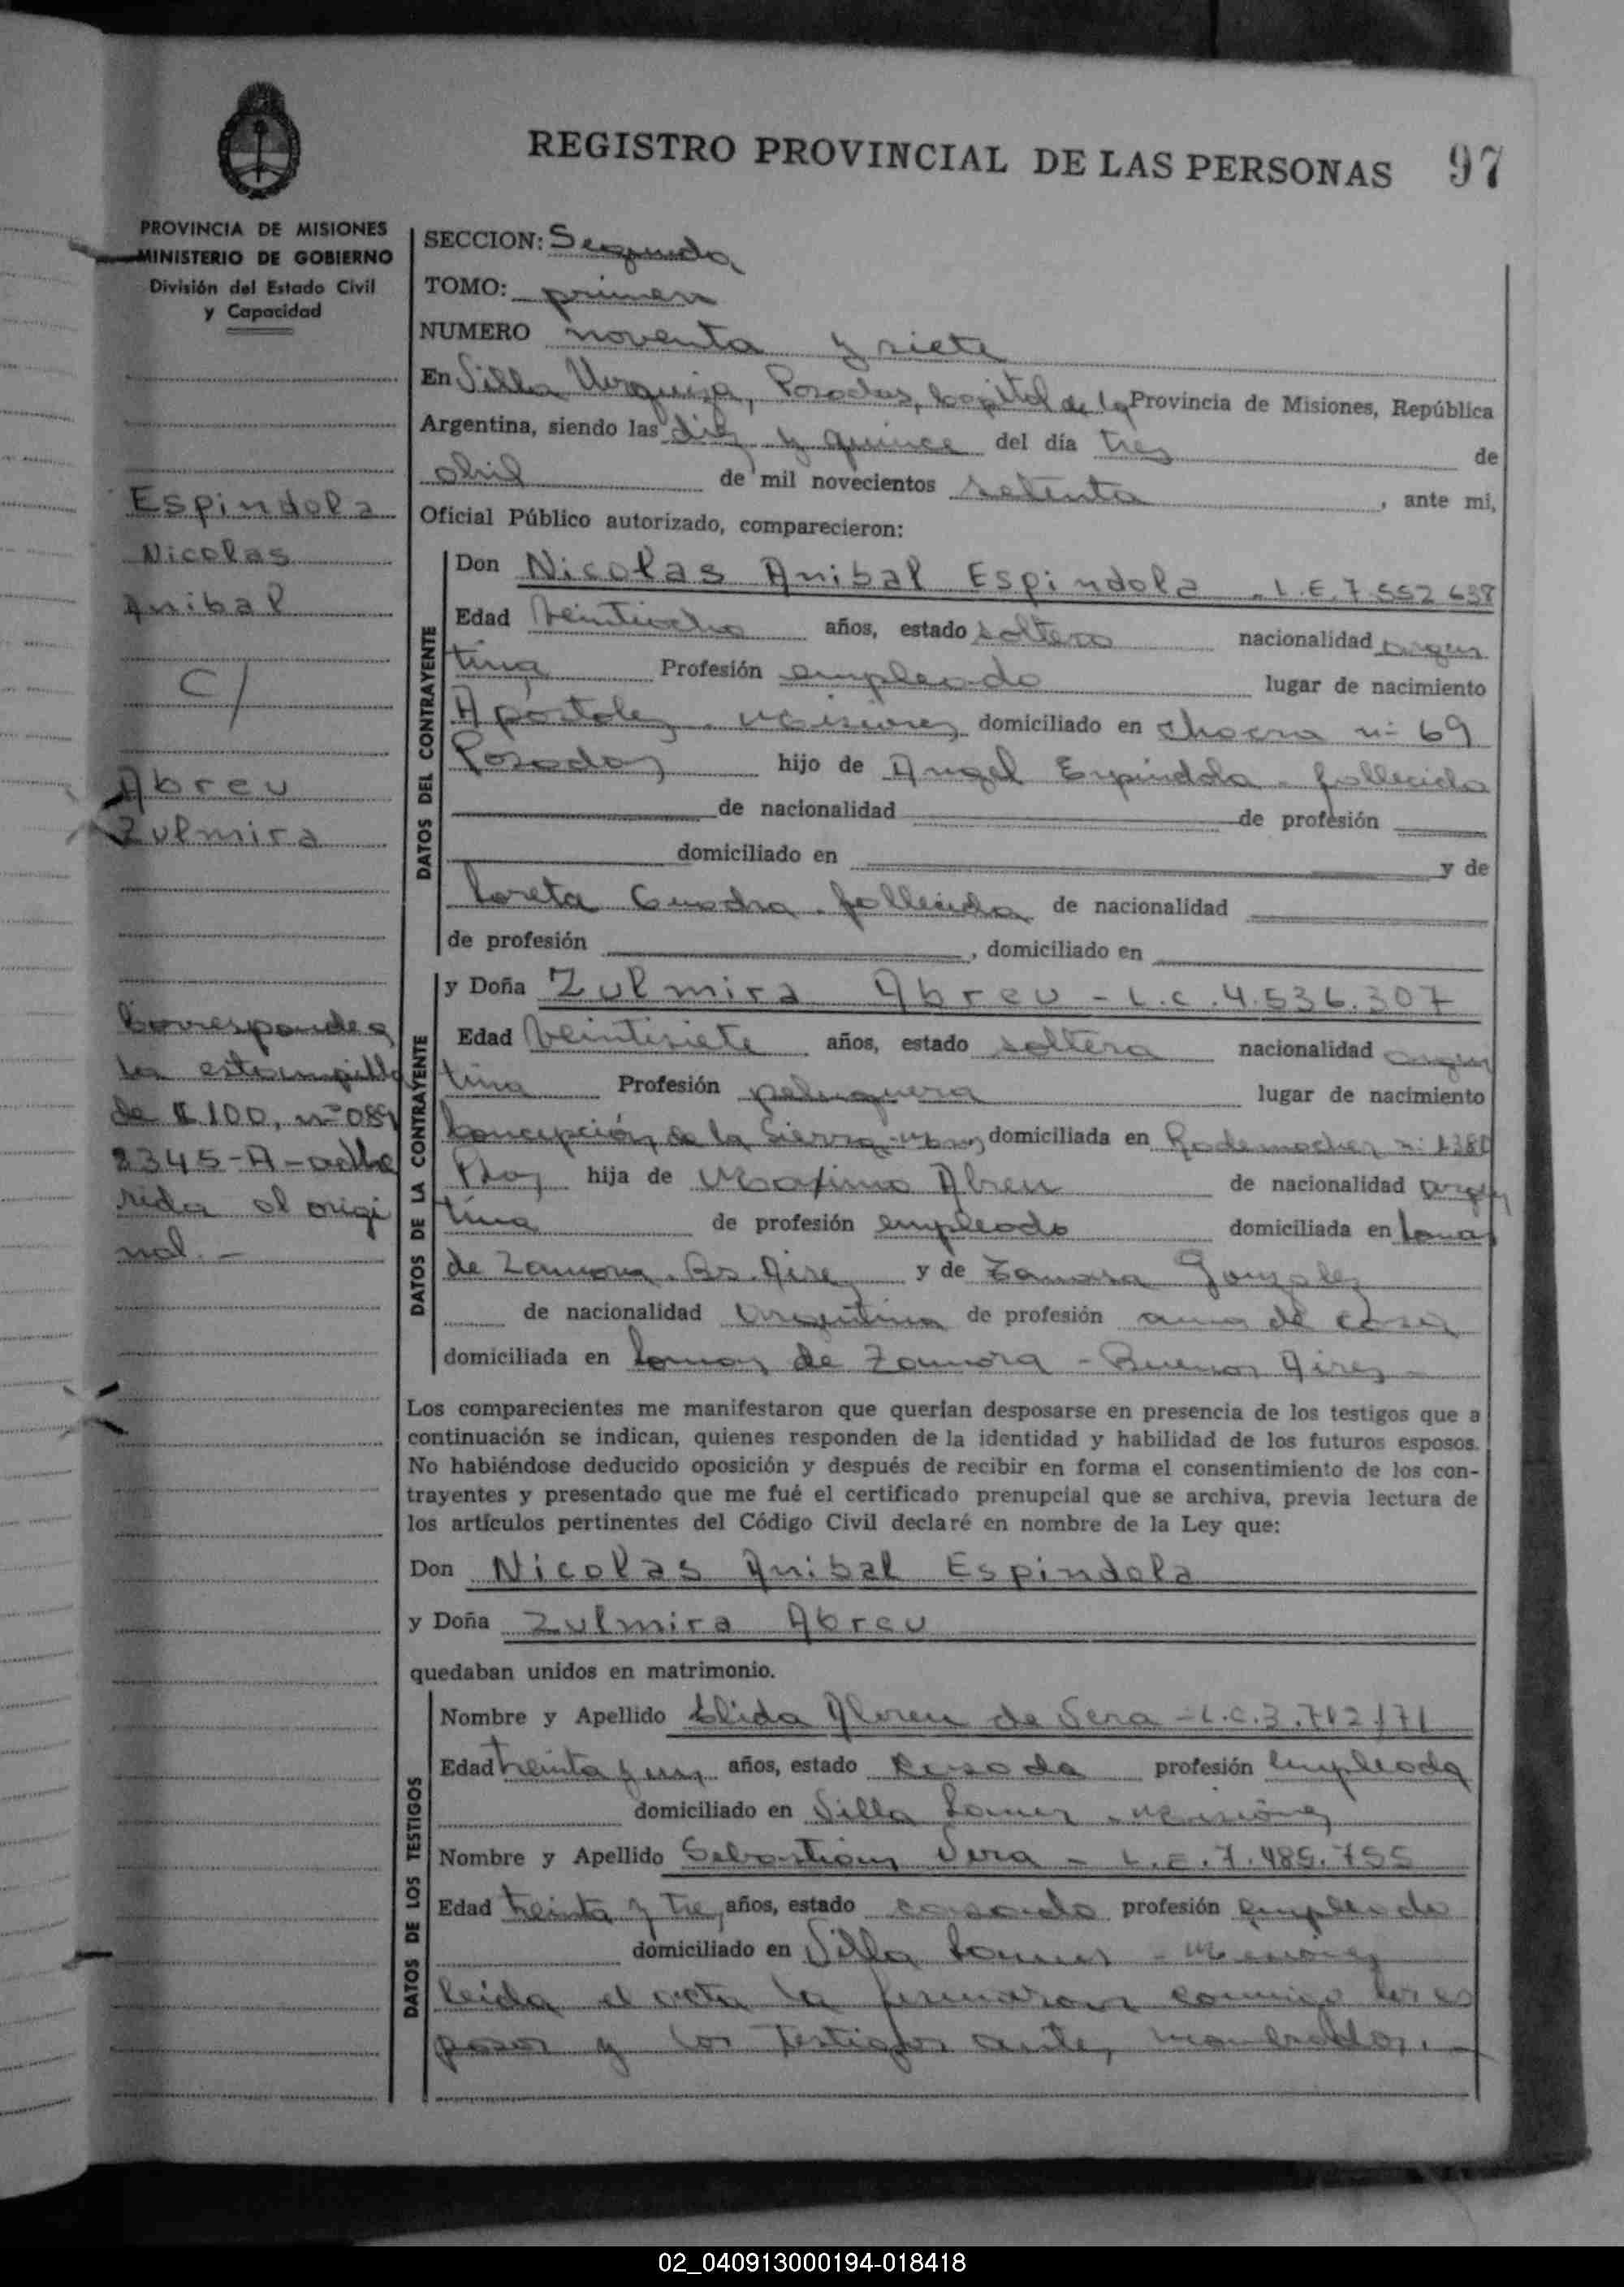 REGISTRO PROVINCIAL DE LAS PERSONAS 97
PROVINCIA DE MISIONES
MINISTERIO DE GOBIERNO
División del Estado Civil
y Capacidad
Espindola
Nicolas
Anibal
c/
Abreu
Zulmira
Corresponde a
la estampilla
de $ 100, nº 089
2345-A-adhe
rida al origi
nal.-
SECCION: Segunda
TOMO: primero
NUMERO noventa y siete
En Villa Urquiza, Posadas, Capital de la Provincia de Misiones, República
Argentina, siendo las diez y quince del día tres de
abril de mil novecientos setenta, ante mi,
Oficial Público autorizado, comparecieron:
DATOS DEL CONTRAYENTE
Don Nicolas Anibal Espindola - L.E. 7.552.638
Edad veintiocho años, estado soltero nacionalidad argen
tina Profesión empleado lugar de nacimiento
Apóstoles - Misiones domiciliado en chacra nº 69
Posadas hijo de Angel Espindola - fallecido
de nacionalidad de profesión
domiciliado en y de
Loreta Cuadra - fallecida de nacionalidad
de profesión , domiciliado en
DATOS DE LA CONTRAYENTE
y Doña Zulmira Abreu - L.C. 4.536.307
Edad veintisiete años, estado soltera nacionalidad argen
tina Profesión peluquera lugar de nacimiento
Concepción de la Sierra-Mnes domiciliada en Rademacher nº 1380
Pdas hija de Maximo Abreu de nacionalidad argen
tina de profesión empleado domiciliada en Lomas
de Zamora - Bs. Aires y de Gonzalez
de nacionalidad argentina de profesión ama de casa
domiciliada en Lomas de Zamora - Buenos Aires
Los comparecientes me manifestaron que querían desposarse en presencia de los testigos que a
continuación se indican, quienes responden de la identidad y habilidad de los futuros esposos.
No habiéndose deducido oposición y después de recibir en forma el consentimiento de los con-
trayentes y presentado que me fué el certificado prenupcial que se archiva, previa lectura de
los artículos pertinentes del Código Civil declaré en nombre de la Ley que:
Don Nicolas Anibal Espindola
y Doña Zulmira Abreu
quedaban unidos en matrimonio.
DATOS DE LOS TESTIGOS
Nombre y Apellido Elida Abreu de Vera - L.C. 3.712.171
Edad treinta y un años, estado casada profesión empleada
domiciliado en Villa Lanus - Misiones
Nombre y Apellido Sebastian Vera - L.E. 7.485.755
Edad treinta y tres años, estado casado profesión empleado
domiciliado en Villa Lanus - Misiones
leida el acta la firmaron conmigo los es
posos y los testigos antes nombrados.-
02_040913000194-018418